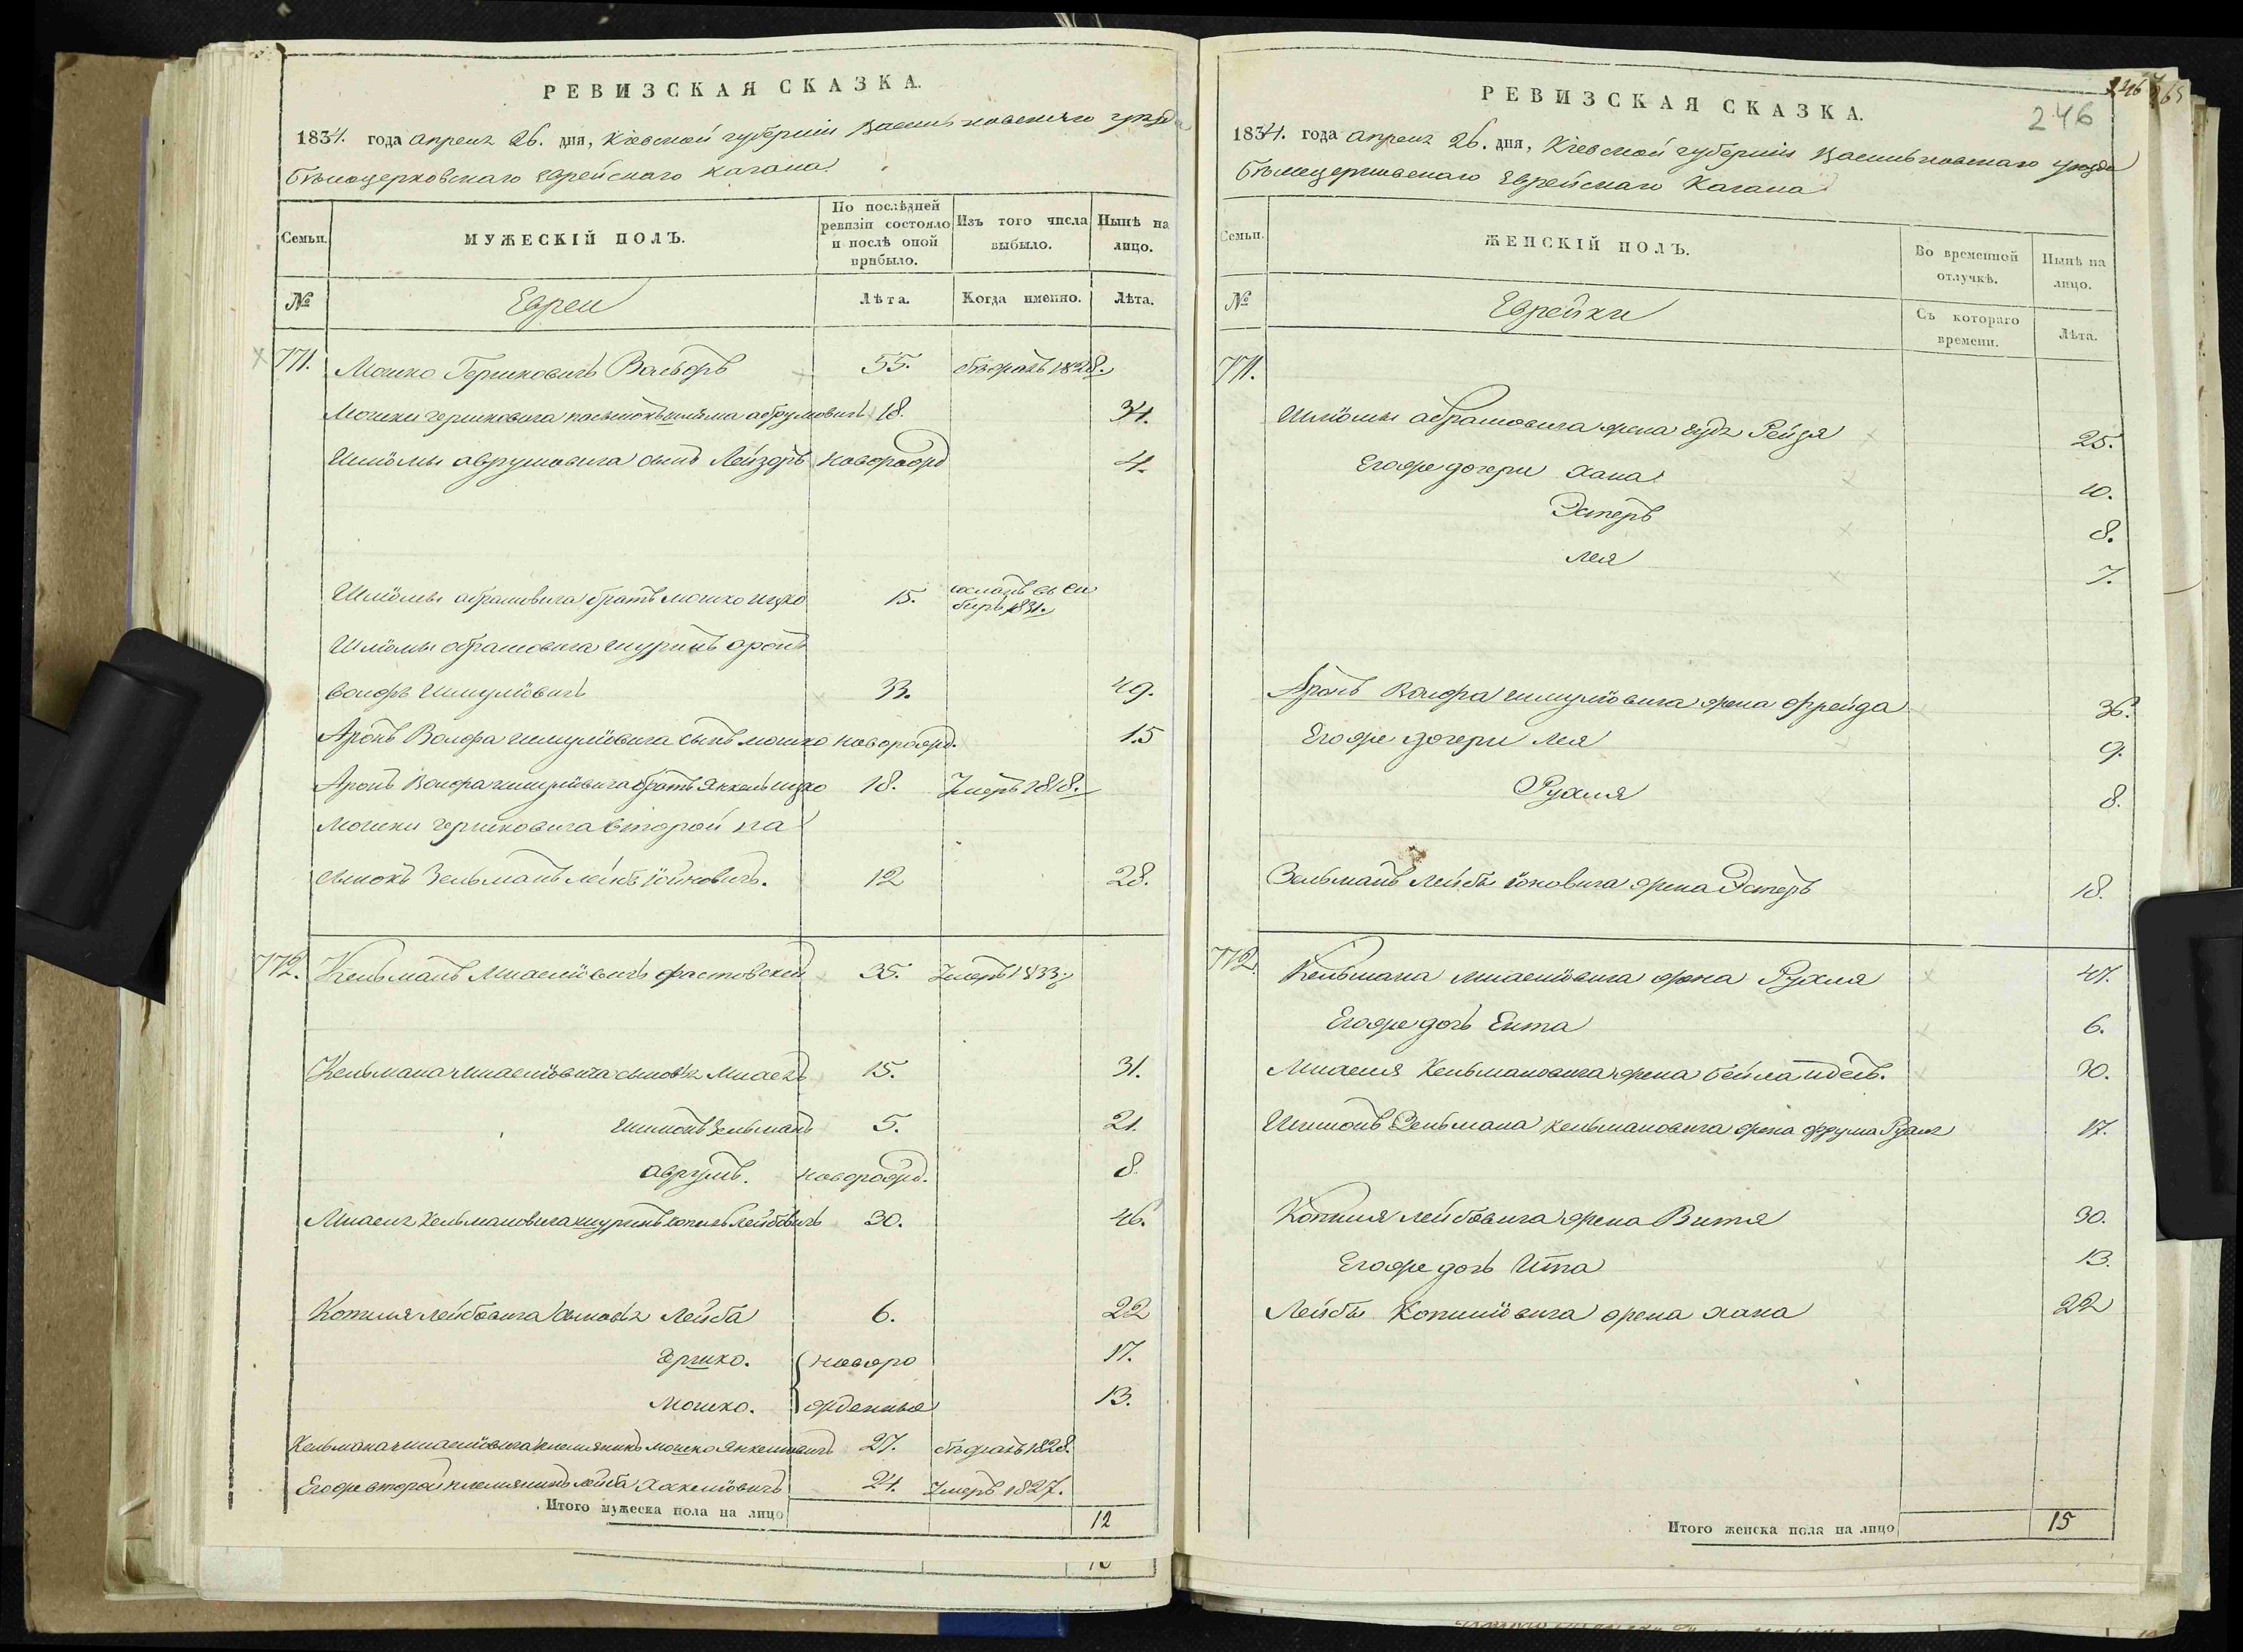 РЕВИЗСКАЯ СКАЗКА.
1834. года апреля 26. дня, Кіевской губерніи Васильковскаго уѣзда
Бѣлоцерковскаго Еврейскаго Кагала
Семьи.
МУЖЕСКІЙ ПОЛЪ.
По послѣдней ревизіи состояло и послѣ оной прибыло.
Изъ того числа выбыло.
Нынѣ на лицо.
№
Евреи
Лѣта.
Когда именно.
Лѣта.
771. Мошко Гершковичъ 55. бѣжалъ 1828.
Мошки Гершковича пасынокъ Шлiома абрумовичъ 18. 34.
Шлiомы аврумовича сынъ Лейзоръ новорожд 4.
Шлiомы абрамовича братъ мошко ицко 15. сосланъ въ Си
бирь 1831.
Шлiомы абрамовича шуринъ аронъ
волфъ Шмулiовичъ 33. 49.
Аронъ Волфа шмулiовича сынъ мошко новорожд. 15
Аронъ Волфа шмулiовича братъ Янкель ицко 18. Умеръ 1818.
Мошки гершковича второй па
сынокъ Зельманъ лейбъ iойновичъ. 12 28.
772. Кельманъ Михелiовичъ фастовскiй 35. Умеръ 1833.
Кельмана михелiовича сыновья Михель 15. 31.
Шимонъ Зельманъ 5. 21.
аврумъ. новорожд. 8.
Михеля Кельмановича шуринъ копель Лейбовичъ 30. 46.
Копиля лейбовича сыновья Лейба 6. 22
Ершко. новоро 17.
Мошко. жденные 13.
Кельмана михелiовича племянникъ мошко Янкелiовичъ 27. бѣжалъ 1828.
Егоже второй племянникъ лейба 24. Умеръ 1827.
Итого мужеска пола на лицо 12
РЕВИЗСКАЯ СКАЗКА.
246
1834. года апреля 26. дня, Кіевской губерніи Васильковскаго уѣзда
Бѣлоцерковскаго Еврейскаго Кагала
Семьи.
ЖЕНСКІЙ ПОЛЪ.
Во временной отлучкѣ.
Нынѣ на лицо.
№
Еврейки
Съ котораго времени.
Лѣта.
771.
Шлiомы абрамовича жена Рейзя 25.
Егоже дочери хана 10.
Эстеръ 8.
лея 7.
Аронъ Волфа шмулiовича жена фрейда 36.
Егоже дочери лея 9.
Рухля 8.
Зельманъ лейбы iоновича жена Эстеръ 18.
772. Кельмана михелiовича жена Рухля 47.
Егоже дочь Ента 6.
Михеля Кельмановича жена бейла 30.
Шимонъ Зельмана кельмановича жена фрума 17.
Копиля лейбовича жена Витя 30.
Егоже дочь Ита 13.
Лейбы Копилiовича жена хана 22
Итого женска пола на лицо 15